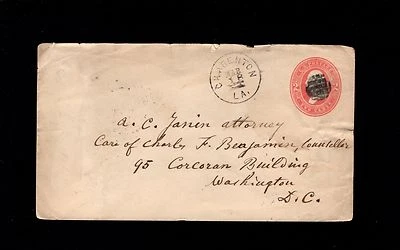 CHARENTON
LA.
A. C. Janin attorney
Care of Charles F. Benjamin, Counsellor
95 Corcoran Building
Washington
D. C.